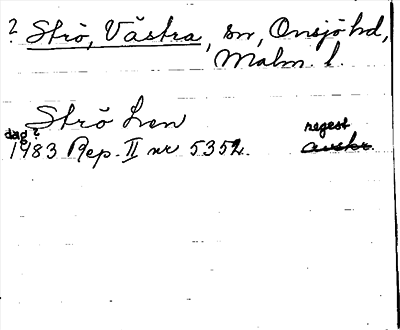 ? Strö, Västra, sn, Onsjö hd,
Malm. l.
Strö Len
dag?
regest
1983 Rep. II nr 5352. avskr.